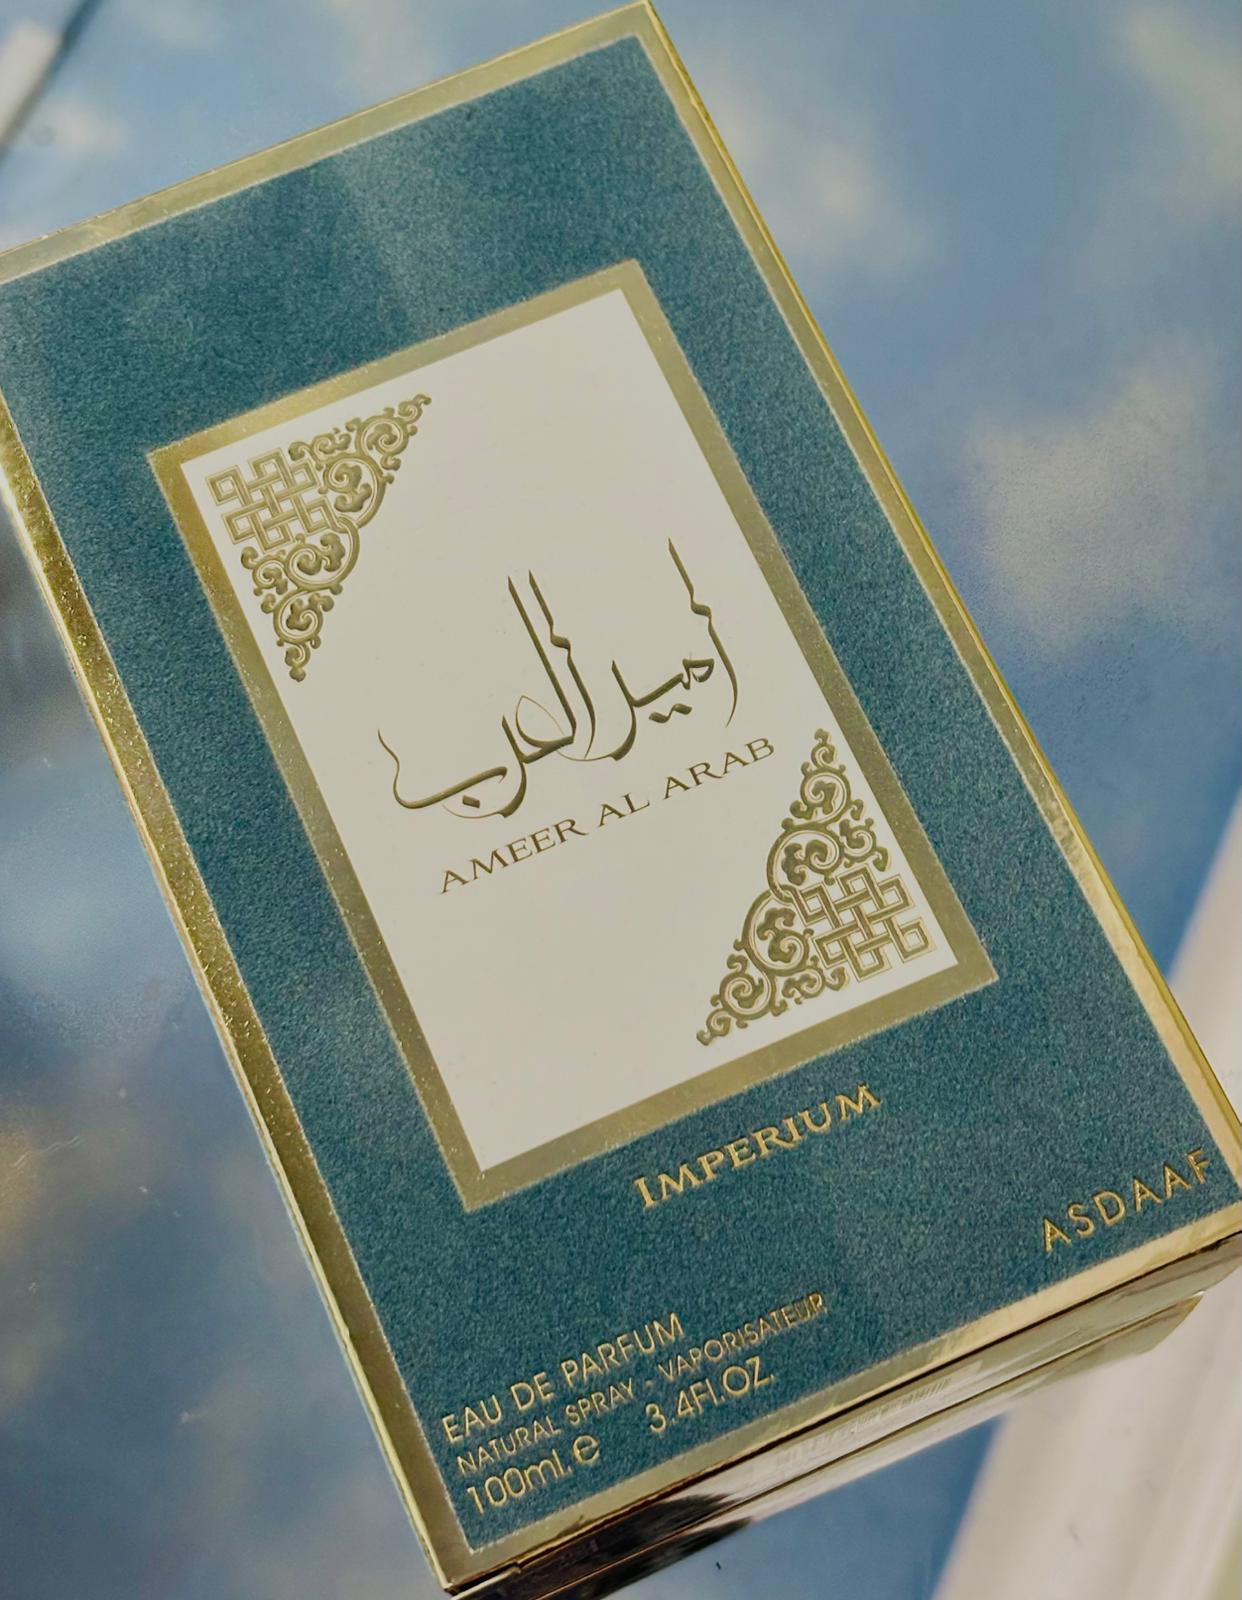 أمير العرب
AMEER AL ARAB
IMPERIUM
ASDAAF
EAU DE PARFUM
NATURAL SPRAY - VAPORISATEUR
100ml. e 3.4Fl.OZ.